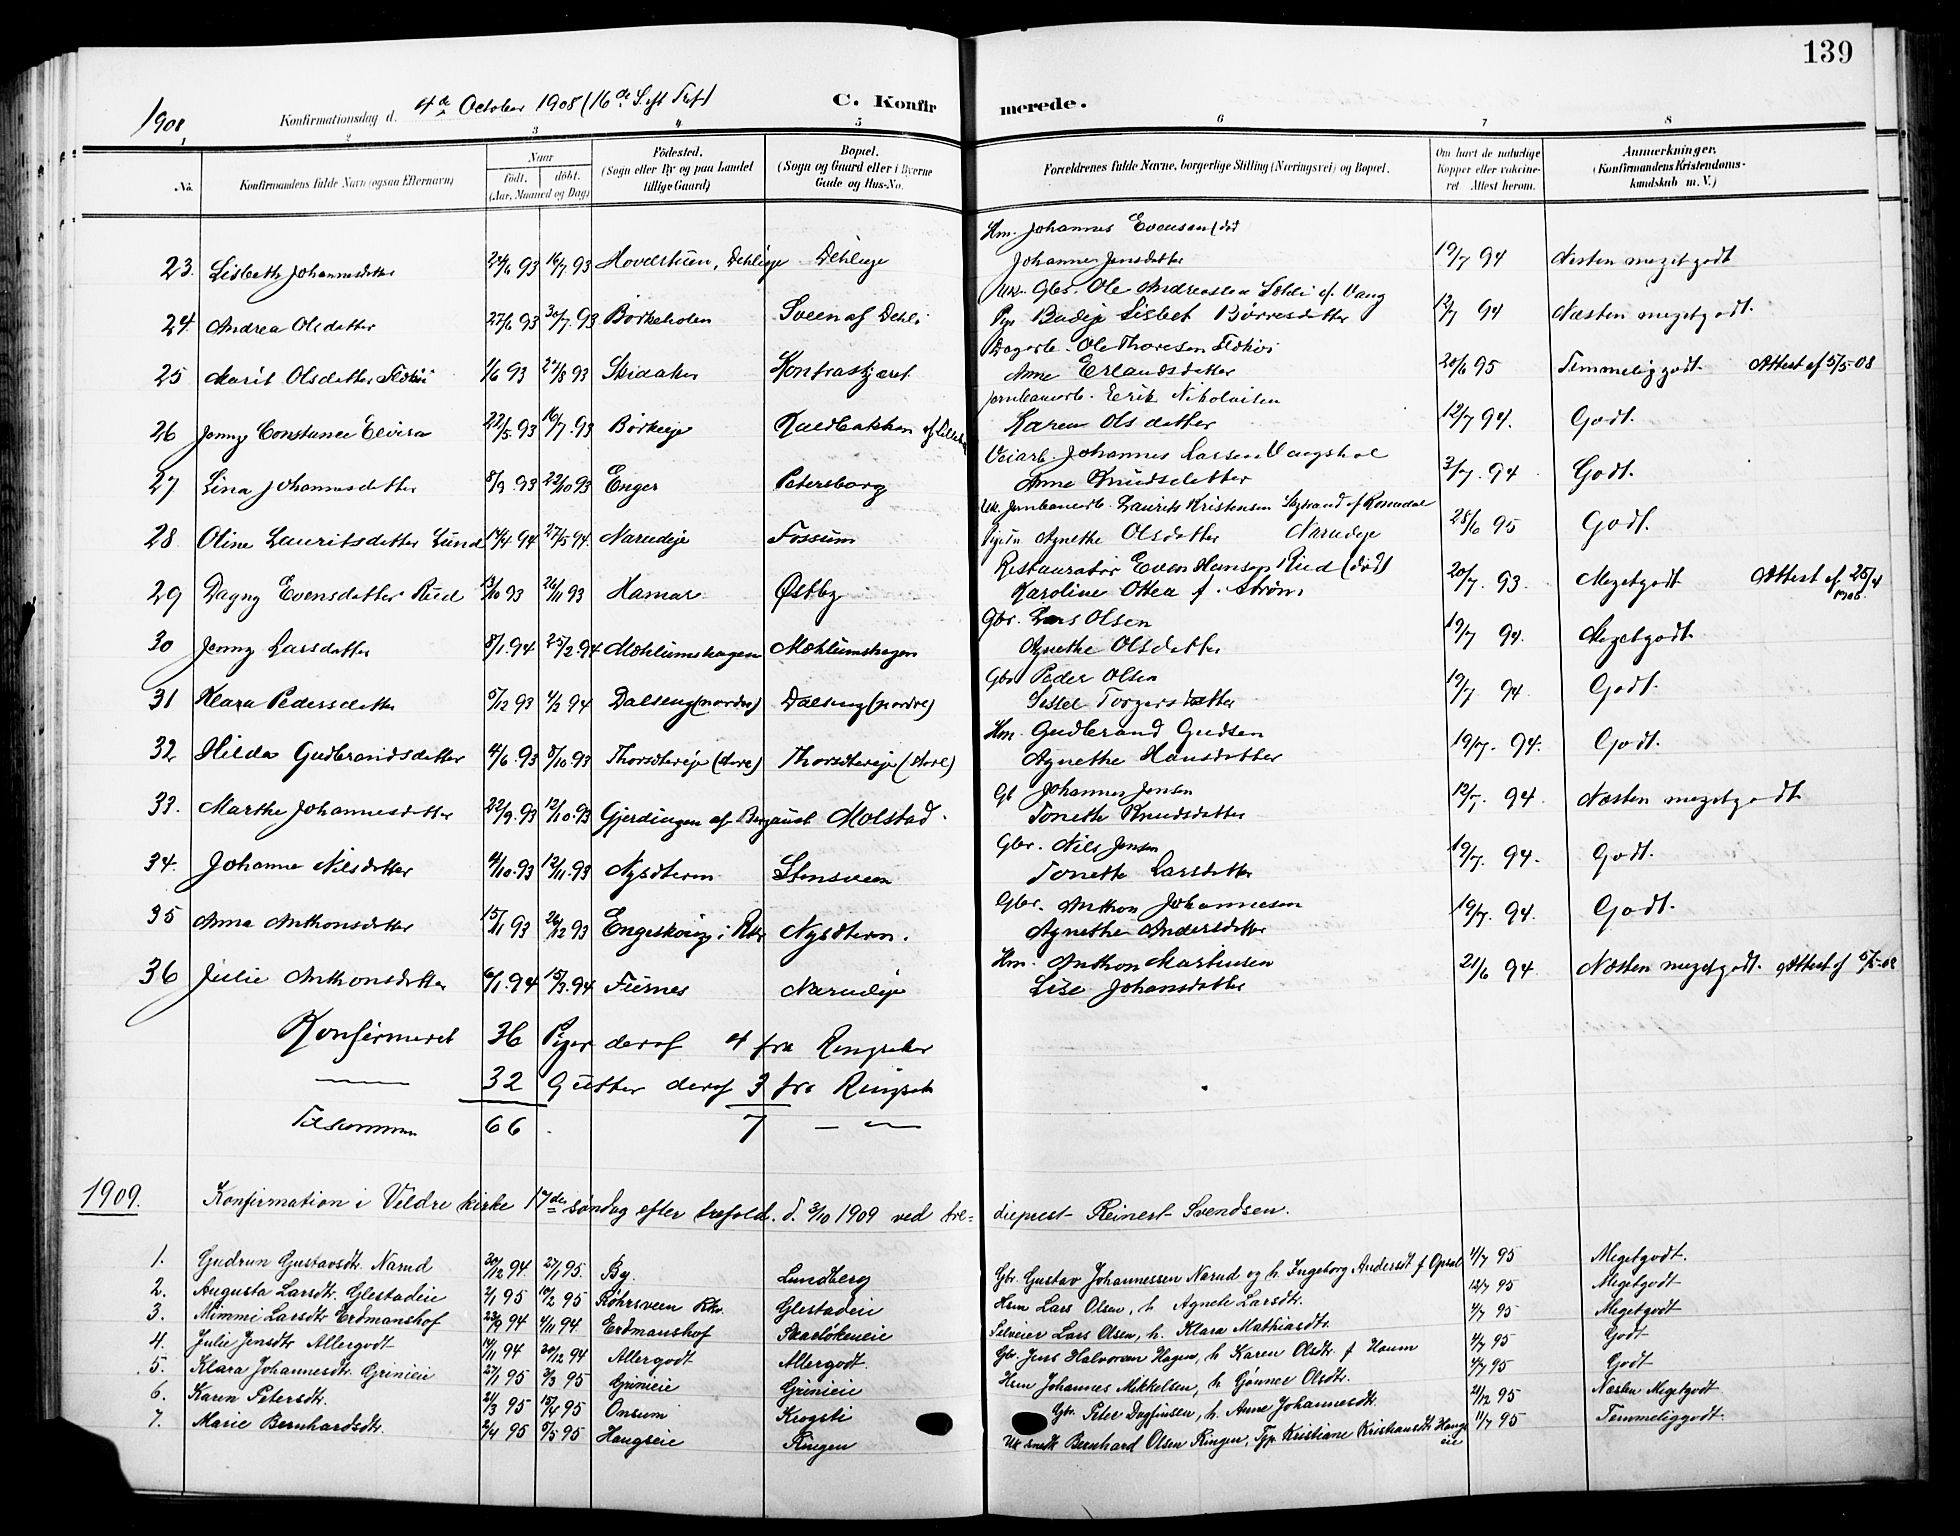 139
1908
Konfirmationsdag d. 4de October 1908 (16de S. eft Tref)
C. Konfirmerede.
1 2 3 4 5 6 7 8
No.
Konfirmandens fulde Navn (ogsaa Efternavn)
Naar
født. døbt.
(Aar, Maaned og Dag)
Fødested.
(Sogn eller By og paa Landet
tillige Gaard)
Bopæl.
(Sogn og Gaard eller i Byerne
Gade og Hus-No.
Forældrenes fulde Navne, borgerlige Stilling (Næringsvei) og Bopæl.
Om havt de naturlige
Kopper eller vakcine-
ret Attest herom.
Anmærkninger.
(Konfirmandens Kristendoms-
kundskab m. V.)
Hm. Johannes Evensen (död
23. Lisbeth Johannesdatter 24/6 93 16/7 93 Hovelstuen, Dehlieje Dehlieje Johanne Jensdatter 19/7 94 Næsten megetgodt
Uk. Gbr. Ole Andreassen Dehli af Vang
24. Andrea Olsdatter 27/6 93 30/7 93 Börkeholen Sveen af Dehli Pige Budeje Lisbet Börresdatter 12/7 94 Næsten megetgodt.
Dagarb. Ole Thoresen Flækøi
25 Marit Olsdatter Flækøi 1/6 93 27/8 93 Skiaker Kontraskjæret Anne Erlandsdatter 20/6 95 Temmeliggodt. Attest af 5/5-08
Jernbanearb. Erik Nikolaisen
26 Jenny Constance Elvira 22/5 93 16/7 93 Börkeeje Kueelbakken af Lille Karen Olsdatter 12/7 94. Godt.
Veiarb. Johannes Larsen Vangshol
27 Lina Johannesdatter 8/9 93 22/10 93 Enger Petersborg Anne Knudsdatter 3/7 94 Godt.
Uk. Jernbanearb. Laurits Kristensen Skjstrand af Rosendal
28 Oline Lauritsdatter Lund 14/4 94 27/5 94. Narudeje Fossum Pigen Agnethe Olsdatter Narudeje 28/6 95 Godt.
Restauratör Even Hansen Rud (död)
29 Dagny Evensdatter Rud 13/10 93 26/11 93 Hamar Østby Karoline Ottea f. Ström 20/7 93. Megetgodt Attest af 25/4 1908.
Gbr. Lars Olsen
30 Jenny Larsdatter 8/1 94 25/2 94 Mæhlumshagen Mæhlumshagen Agnethe Olsdatter 19/7 94. Megetgodt.
Gbr Peder Olsen
31 Klara Pedersdatter 5/12 93 4/2 94 Dalseng (nordre) Dalseng (nordre) Sissel Torgersdatter 19/7 94. Godt.
Hm. Gudbrand Gudsen
32 Hilda Gudbrandsdatter 4/6 93 8/10 93 Thorsdtereje (store) Thorsdtereje (store) Agnethe Hansdatter 19/7. 94. Godt.
Gb Johannes Jensen
33. Marthe Johannesdatter 22/9 93 12/10 93 Gjerdingen af Bergaust Molstad. Tonette Knudsdatter 12/7. 94. Næsten megetgodt.
Gbr. Nils Jensen
34. Johanne Nilsdatter 4/10 93 12/11 93 Nysdteren Stensveen Tonette Larsdatter 19/7. 94. Godt.
Gbr. Anthon Johannesen
35 Anna Anthonsdatter 15/11 93 26/12 93 Engeskoug i Rkr Nysdtern. Agnethe Andersdatter 19/7. 94. Godt.
Hm. Anthon Martinsen
36 Julie Anthonsdatter 6/1 94 15/3 94 Furnes Narudeje Lise Johansdatter 21/6 94 Næsten megetgodt. Attest af 5/5-08
Konfirmeret 36 Piger deraf 4 fra Ringsaker
— 32 Gutter deraf 3 fra Ringsak
Tilsammen 66 7 — —
1909. Konfirmation i Veldre kirke 17de søndag efter trefold. d. 3/10 1909 ved tre-
dieprest Reinert Svendsen.
1. Gudrun Gustavsdtr. Narud 30/12 94. 27/1 95. By. Lundberg Gbr. Gustav Johannessen Narud og h. Ingeborg Andersdt f Opsal 4/7 95 Megetgodt.
2. Augusta Larsdtr. Glestadeie 2/1 95 10/2 95 Røhrsveen Rkr. Glestadeie Hsm Lars Olsen, h. Agnete Larsdtr. 12/7 95 Megetgodt
3. Mimmi Larsdtr Erdmanshof 23/9 94 4/11 94. Erdmanshof Skarløkeneie Selveier Lars Olsen, h. Klara Mathiasdtr. 4/7 95 Megetgodt
4. Julie Jensdtr Allergodt 14/11 94 30/12 94 Allergodt Allergodt. Gbr. Jens Halvorsen Hagen, h Karen Olsdtr. f Houm 4/7 95 Godt
5. Klara Johannesdtr. Grinieie 27/1 95 3/3 95 Grinieie Grinieie Hsm Johannes Mikkelsen, h Gønner Olsdtr. 4/7 95 Godt
6. Karen Petersdtr. 21/3 95 15/4 95 Onsum Krogsti Gbr. Peter Dagfinsen, h. Anne Johannesdtr. 21/12 95 Næsten Megetgodt
7. Marie Bernhardsdtr. 2/4 95 5/5 95 Haugseie Ringen Uk smedt Bernhard Olsen Ringen, Tjp. Kristiane Kristiansdtr Haugs eie 11/7 95 Temmeliggodt.